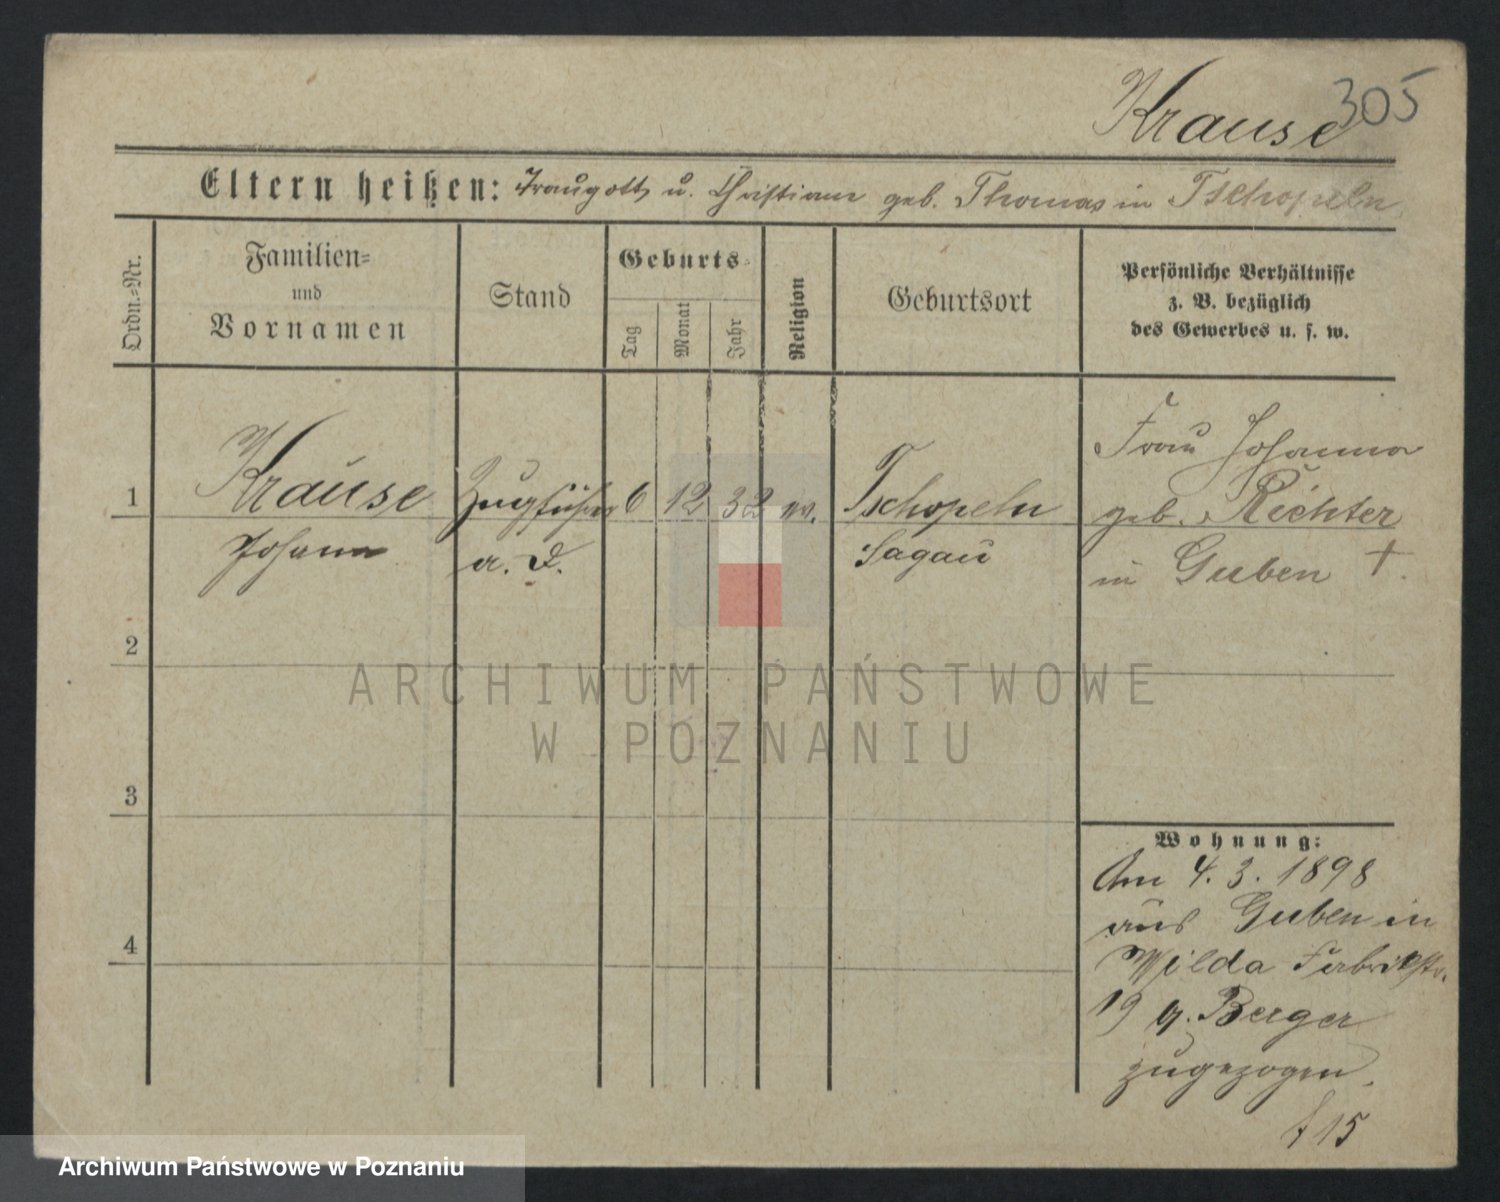 305
Krause
Eltern heißen: Traugott u. Christiane geb. Thomas in Tschopeln
Ordn.-Nr.
Familien-
und
Vornamen
Stand
Geburts-
Tag
Monat
Jahr
Religion
Geburtsort
Persönliche Verhältnisse
z. B. bezüglich
des Gewerbes u. s. w.
1
Krause
Johann
Zugführer
a. D.
6
12
32
ev.
Tschopeln
Sagau
Frau Johanna
geb. Richter
in Guben †.
2
3
4
Wohnung:
Am 4. 3. 1898
aus Guben in
Wilda Fabrikstr.
19 b. Berger
zugezogen.
15
ARCHIWUM PAŃSTWOWE
W POZNANIU
Archiwum Państwowe w Poznaniu